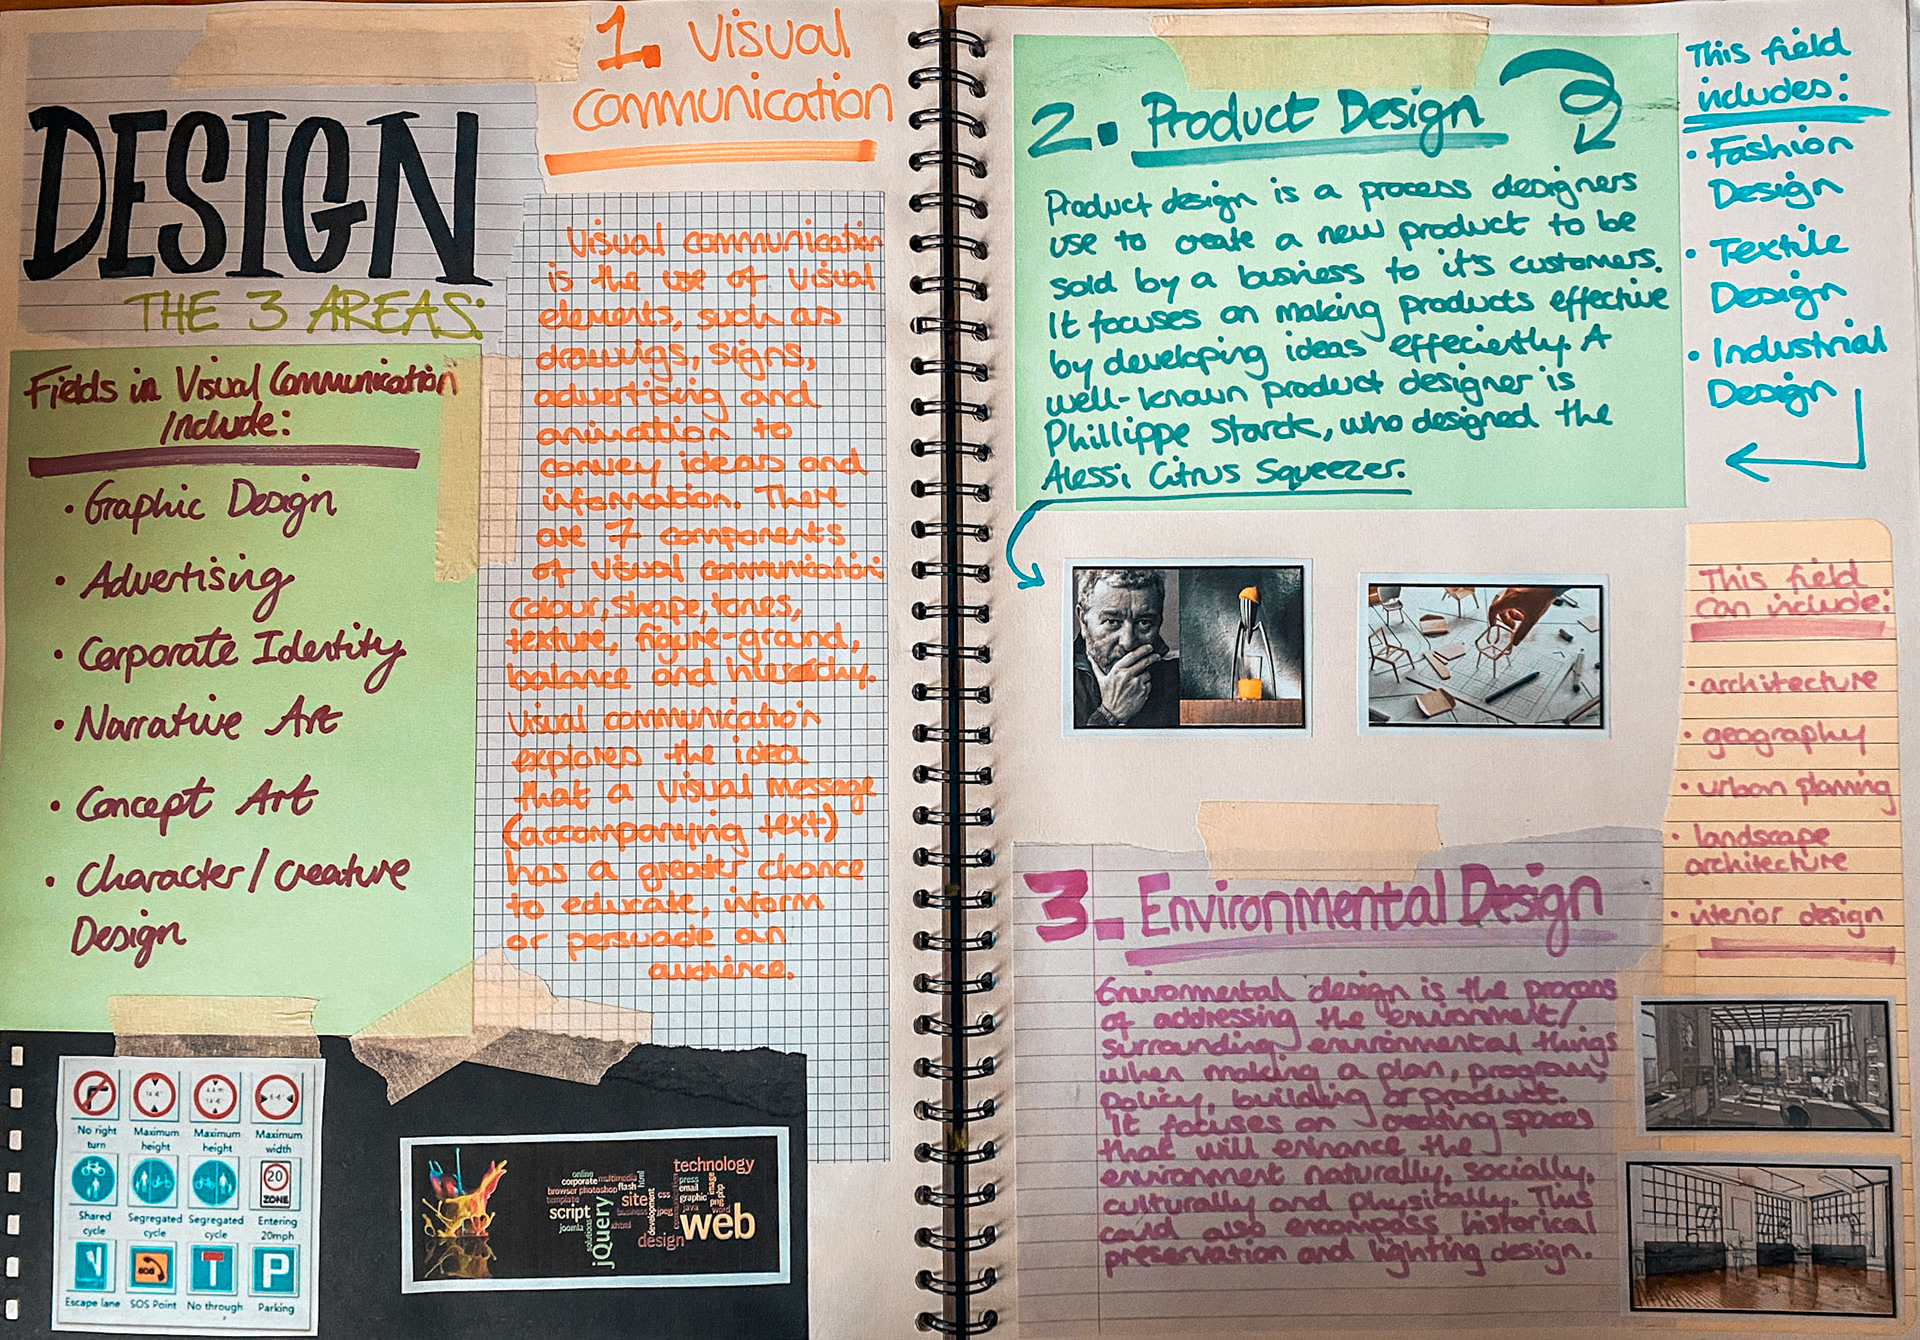 DESIGN
THE 3 AREAS:
Fields in Visual Communication
Include:
• Graphic Design
• Advertising
• Corporate Identity
• Narrative Art
• Concept Art
• Character/Creature
Design
1. Visual
Communication
Visual communication
is the use of visual
elements, such as
drawings, signs,
advertising and
animation to
convey ideas and
information. There
are 7 components
of visual communication:
colour, shape, tones,
texture, figure-ground,
balance and hierarchy.
Visual communication
explores the idea
that a visual message
(accompanying text)
has a greater chance
to educate, inform
or persuade an
audience.
No right
turn
Maximum
height
Maximum
height
Maximum
width
Shared
cycle
Segregated
cycle
Segregated
cycle
20
ZONE
Entering
20mph
Escape lane
SOS
SOS Point
No through
P
Parking
online
corporate multimedia
browser photoshop flash
template
script
joomla
solutions
jQuery
xhtml
html
site
business
development
css
jpeg
technology
press
email
graphic
java
image
php
word
design
web
2. Product Design
Product design is a process designers
use to create a new product to be
sold by a business to it's customers.
It focuses on making products effective
by developing ideas effeciently. A
well-known product designer is
Phillippe Starck, who designed the
Alessi Citrus Squeezer.
This field
includes:
• Fashion
Design
• Textile
Design
• Industrial
Design
This field
can include:
• architecture
• geography
• urban planning
• landscape
architecture
• interior design
3. Environmental Design
Environmental design is the process
of addressing the environment/
surrounding environmental things
when making a plan, program,
policy, building or product.
It focuses on creating spaces
that will enhance the
environment naturally, socially,
culturally and physically. This
could also encompass historical
preservation and lighting design.